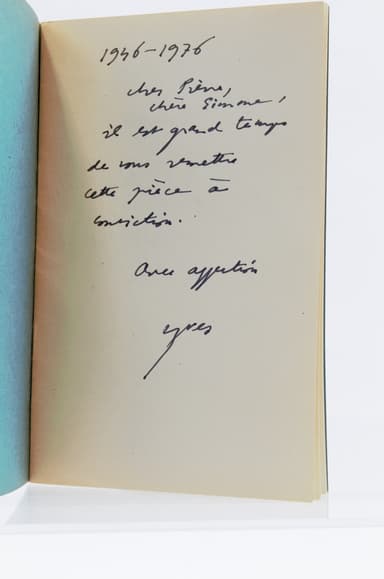 1946-1976
cher Pierre,
chère Simone,
il est grand temps
de vous remettre
cette pièce à
conviction.
Avec affection
Yves